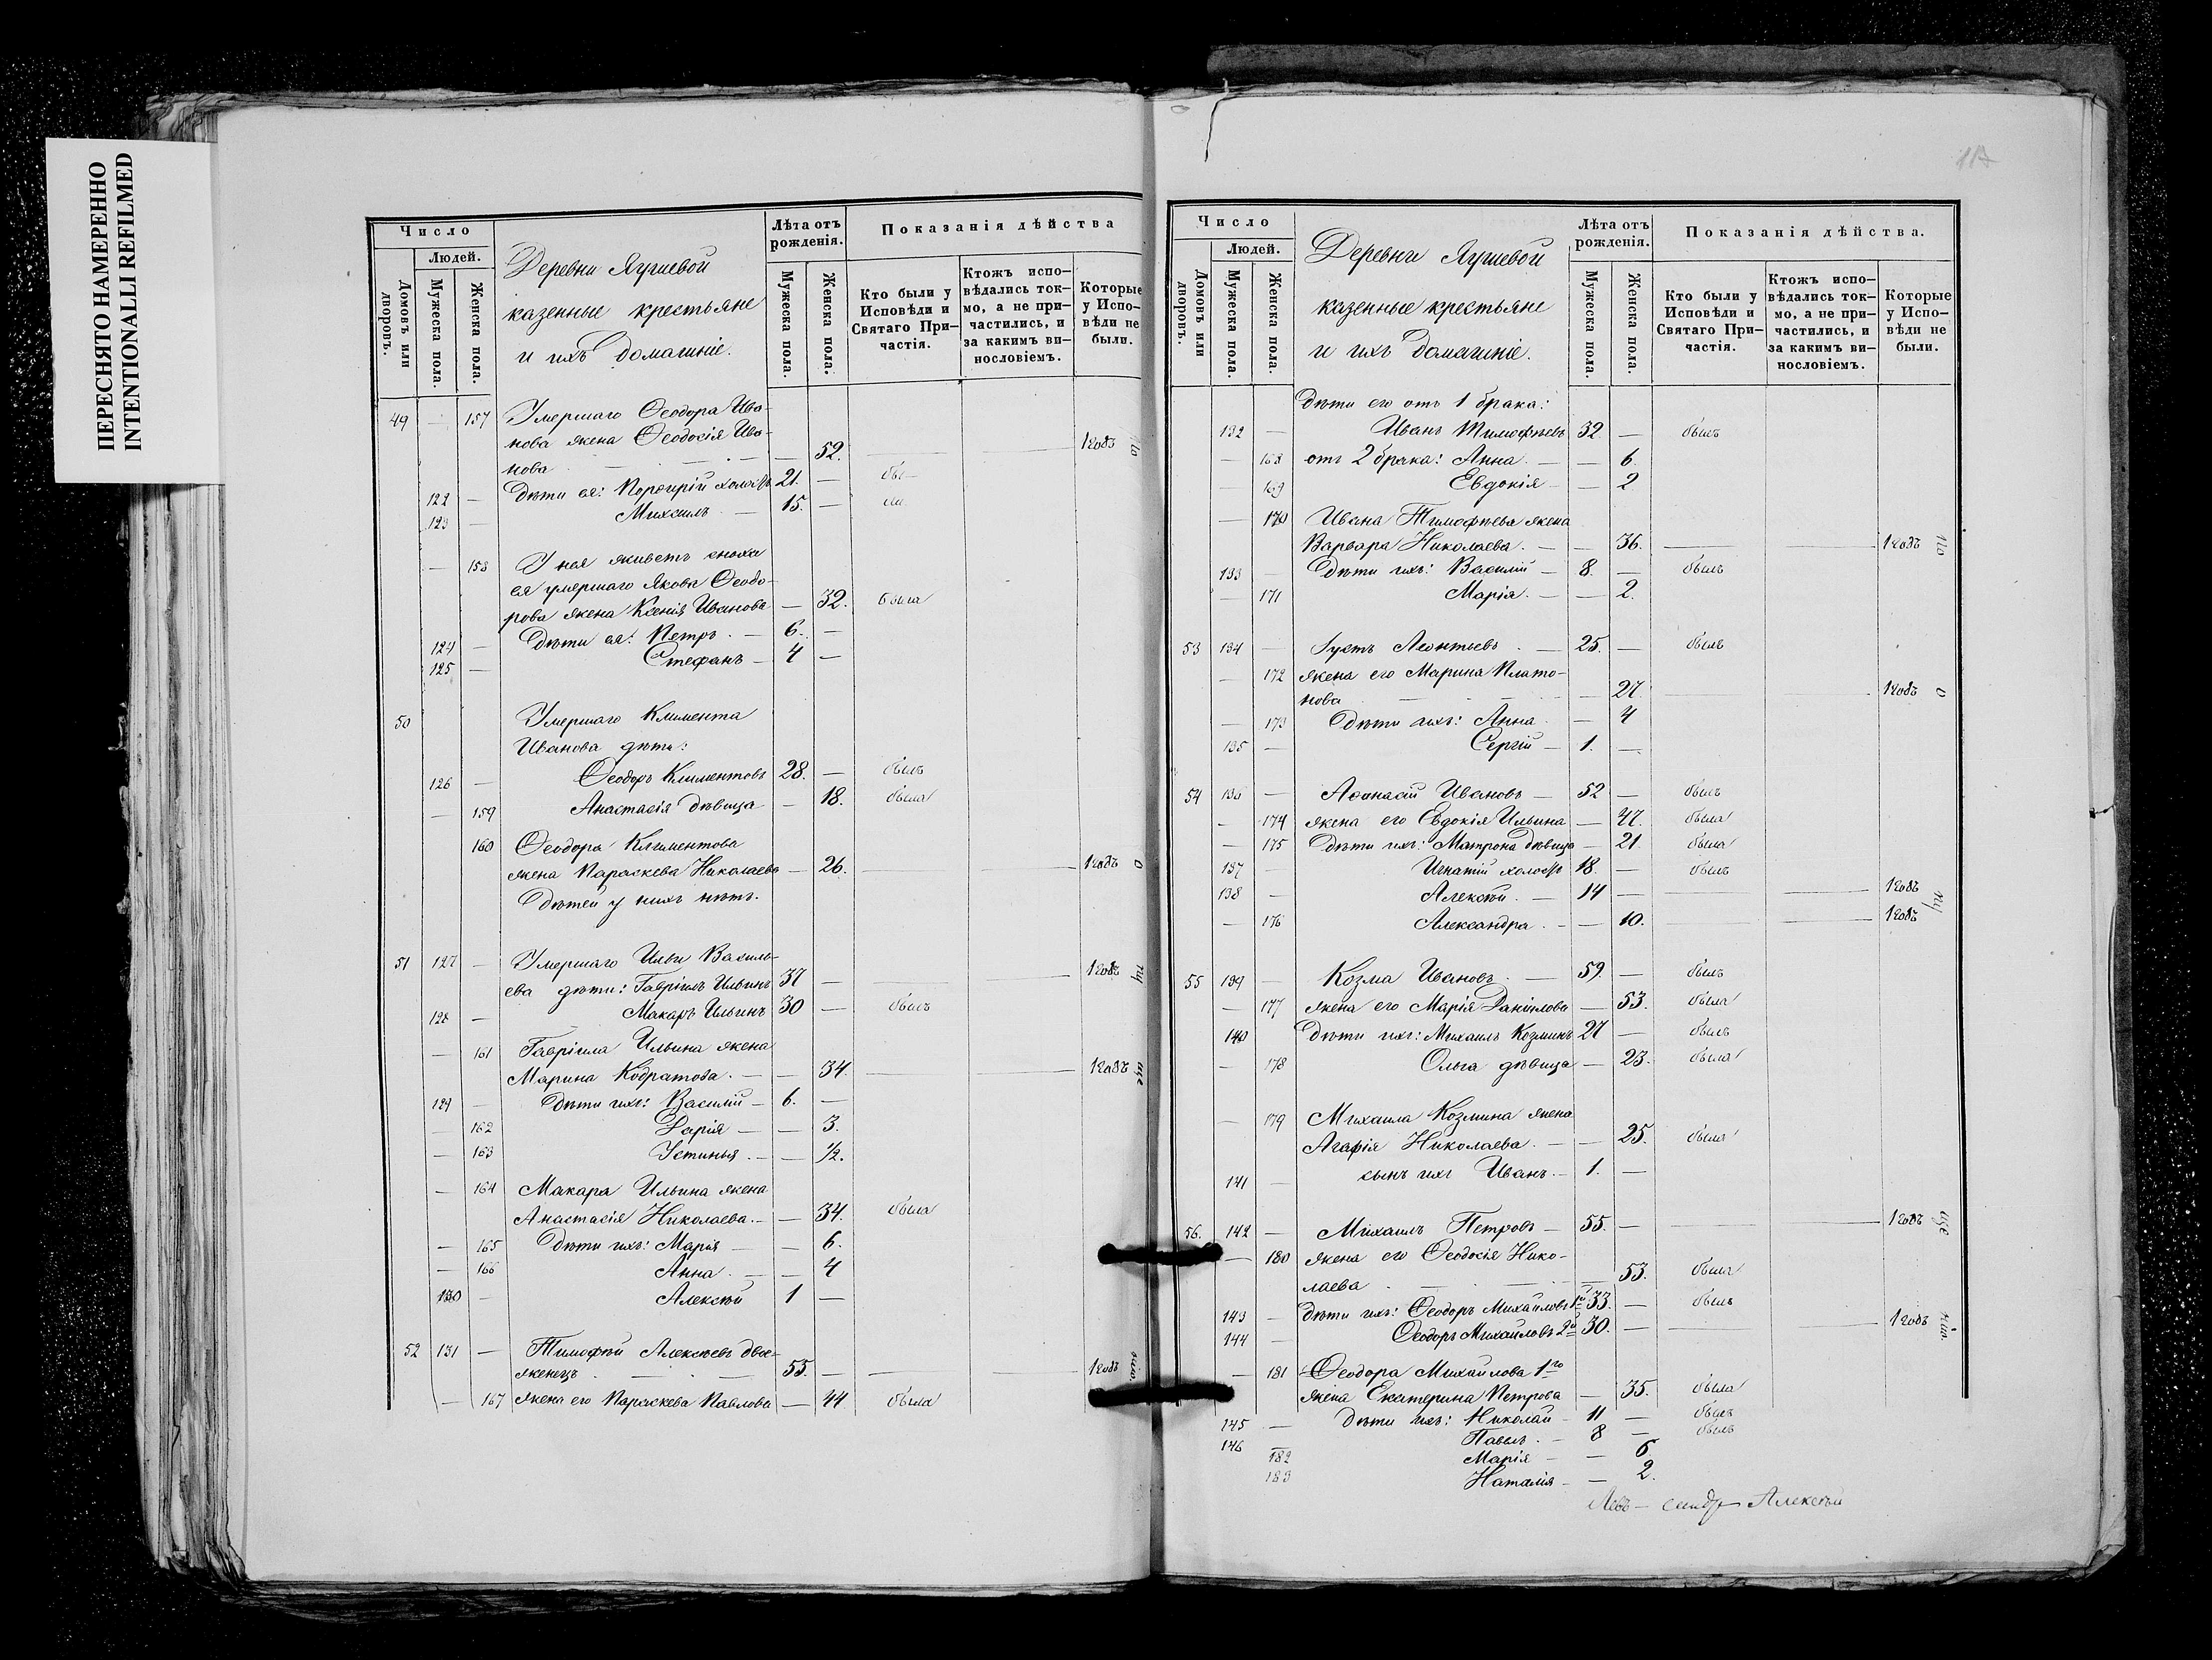 ПЕРЕСНЯТО НАМЕРЕННО
INTENTIONALLI REFILMED
Число
Людей.
Домовъ или дворовъ.
Мужеска пола.
Женска пола.
Деревни
казенные крестьяне
и ихъ домашніе.
Лѣта отъ рожденія.
Мужеска пола.
Женска пола.
Показанія дѣйства
Кто были у Исповѣди и Святаго Причастія.
Ктожъ исповѣдались токмо, а не причастились, и за какимъ винословіемъ.
Которые у Исповѣди не были.
49 — 157 Умершаго Ѳеодора Ива-
нова жена Ѳеодосія Ива- 1 годъ
нова — 52.
122 — Дѣти ея: Порфирій холостъ 21. —
123 — Михаилъ — 15. —
— 158 У нея живетъ сноха
ея умершаго Якова Ѳеодо-
рова жена Ксенія Иванова — 32. была
124 — Дѣти ея: Петръ. — 6. —
125 — Стефанъ — 4 —
50 Умершаго Климента
Иванова дѣти:
126 — Ѳеодоръ Климентовъ 28. — былъ
— 159 Анастасія дѣвица — 18. была
160 Ѳеодора Климентова
жена Параскева Николаева — 26. 1 годъ
Дѣтей у нихъ нѣтъ.
51 127 — Умершаго Ильи Василь-
ева дѣти: Гавріилъ Ильинъ 37 — 1 годъ
128 — Макаръ Ильинъ 30 — былъ
— 161 Гавріила Ильина жена
Марина Кодратова. — — 34. 1 годъ
129 — Дѣти ихъ: Василій — 6. —
— 162 Дарія — — 3.
— 163 Устинья. — — ½.
— 164 Макара Ильина жена
Анастасія Николаева. — — 34. была
— 165 Дѣти ихъ: Марія — — 6.
— 166 Анна. — — 4
130 — Алексѣй 1 —
52 131 — Тимофѣй Алексѣевъ двое-
женецъ. — 55. — 1 годъ
— 167 Жена его Параскева Павлова — 44 была
Число
Людей.
Домовъ или дворовъ.
Мужеска пола.
Женска пола.
Деревни
казенные крестьяне
и ихъ домашніе.
Лѣта отъ рожденія.
Мужеска пола.
Женска пола.
Показанія дѣйства.
Кто были у Исповѣди и Святаго Причастія.
Ктожъ исповѣдались токмо, а не причастились, и за какимъ винословіемъ.
Которые у Исповѣди не были.
Дѣти его отъ 1 брака:
132 — Иванъ Тимофѣевъ 32. — былъ
168 отъ 2 брака: Анна. — — 6.
— 169 Евдокія — — 2
— 170 Ивана Тимофѣева жена
Варвара Николаева. — — 36. 1 годъ
133 — Дѣти ихъ: Василій — 8. — былъ
— 171 Марія. — — 2.
53 134 — Іустъ Леонтьевъ. — 25. — былъ
— 172 жена его Марина Плато-
нова — 27 1 годъ
— 173 Дѣти ихъ: Анна. — 4
135 — Сергій — 1. —
54 136 — Аѳанасій Ивановъ — 52 — былъ
— 174 жена его Евдокія Ильина — 47. была
— 175 Дѣти ихъ: Матрона дѣвица — 21. была
137 — Игнатій холостъ 18. — былъ
138 — Алексѣй. — 14 — 1 годъ
— 176 Александра. — — 10. 1 годъ
55 139 — Козма Ивановъ. — 59. — былъ
— 177 жена его Марія Данилова — 53. была
140 Дѣти ихъ: Михаилъ Козминъ 27 — былъ
— 178 Ольга дѣвица — 23. была
— 179 Михаила Козмина жена
Агафія Николаева. — — 25. была
141 — сынъ ихъ Иванъ. — 1. —
56. 142 — Михаилъ Петровъ — 55. — 1 годъ
— 180 жена его Ѳеодосія Нико-
лаева — 53. была
143 — дѣти ихъ: Ѳеодоръ Михайловъ 1й 33. — былъ
144 — Ѳеодоръ Михайловъ 2й 30. — 1 годъ
— 181 Ѳеодора Михайлова 1го
жена Екатерина Петрова — 35. была
145 — Дѣти ихъ: Николай — 11 — былъ
146 — Павелъ. — 8 — былъ
182 Марія — — 6
183 Наталія — — 2.
Алексѣй